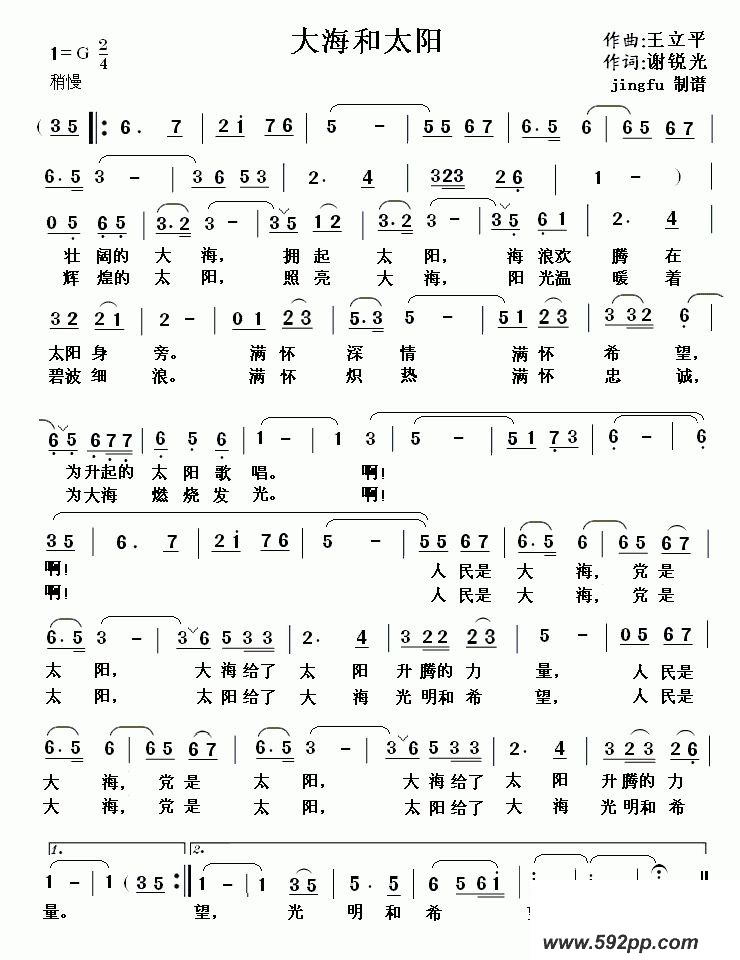 大海和太阳
1=G 2/4
作曲:王立平
作词:谢锐光
稍慢
jingfu 制谱
( 3 5 ‖: 6. 7 | 2 i 7 6 | 5 - | 5 5 6 7 | 6. 5 6 | 6 5 6 7 |
6. 5 3 - | 3 6 5 3 | 2. 4 | 3 2 3 2 6 | 1 - ) |
0 5 6 5 | 3. 2 3 - | 3 5 1 2 | 3. 2 3 - | 3 5 6 1 | 2. 4 |
壮 阔的 大 海, 拥 起 太 阳, 海 浪欢 腾 在
辉 煌的 太 阳, 照 亮 大 海, 阳 光温 暖 着
3 2 2 1 | 2 - | 0 1 2 3 | 5. 3 5 - | 5 1 2 3 | 3 3 2 6 |
太阳 身 旁。 满 怀 深 情 满 怀 希 望,
碧波 细 浪。 满 怀 炽 热 满 怀 忠 诚,
6 5 6 7 7 | 6 5 6 | 1 - | 1 3 | 5 - | 5 1 7 3 | 6 - 6
为升起的 太 阳 歌 唱。 啊!
为大海 燃 烧 发 光。 啊!
3 5 | 6. 7 | 2 i 7 6 | 5 - | 5 5 6 7 | 6. 5 6 | 6 5 6 7 |
啊! 人 民是 大 海, 党 是
啊! 人 民是 大 海, 党 是
6. 5 3 - | 3 6 5 3 3 | 2. 4 | 3 2 2 2 3 | 5 - | 0 5 6 7 |
太 阳, 大 海给了 太 阳 升 腾的 力 量, 人 民是
太 阳, 太 阳给了 大 海 光 明和 希 望, 人 民是
6. 5 6 | 6 5 6 7 | 6. 5 3 - | 3 6 5 3 3 | 2. 4 | 3 2 3 2 6 |
大 海, 党 是 太 阳, 大 海给了 太 阳 升 腾的 力
大 海, 党 是 太 阳, 太 阳给了 大 海 光 明和 希
1. 2.
1 - | 1 ( 3 5 :‖ 1 - | 1 3 5 | 5. 5 | 6 5 6 i
量。 望, 光 明 和 希
www.592pp.com